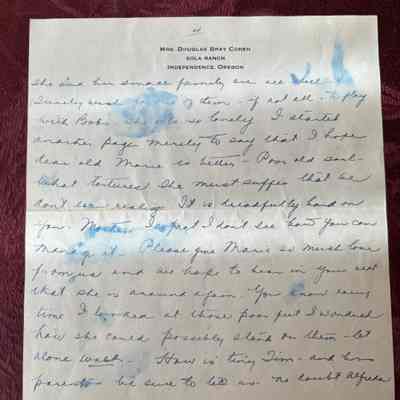 4
MRS. DOUGLAS BRAY COHEN
SOLA RANCH
INDEPENDENCE, OREGON
she and her small family are all well -
Surely wish of them - if not all - to play
with Bobs. She is so lovely I started
another page merely to say that I hope
dear old Marie is better - Poor old soul -
what tortures she must suffer that we
don't even realize. It is dreadfully hard on
you. In fact I don't see how you can
manage it. Please give Marie so much love
from us and we hope to hear in your next
that she is around again. You know every
time I looked at those poor feet I wondered
how she could possibly stand on them - let
alone walk. How is tiny Tim - and his
parents - be sure to tell us - no doubt Alfreda